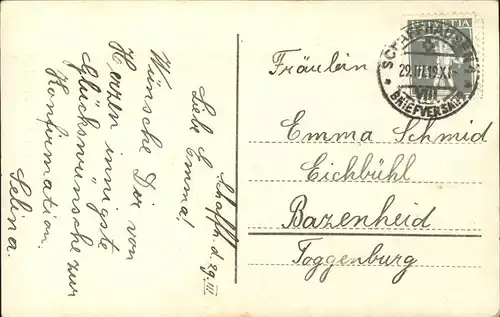 Schaffh. d. 29.III
Liebe Emma!
Wünsche Dir von
Herzen innigste
Glückswünsche zur
Konfirmation.
Selina.
HELVETIA
SCHAFFHAUSEN 1
29.III.19.XI-
VIII
BRIEFVERSAND
Fräulein
Emma Schmid
Eichbühl
Bazenheid
Toggenburg